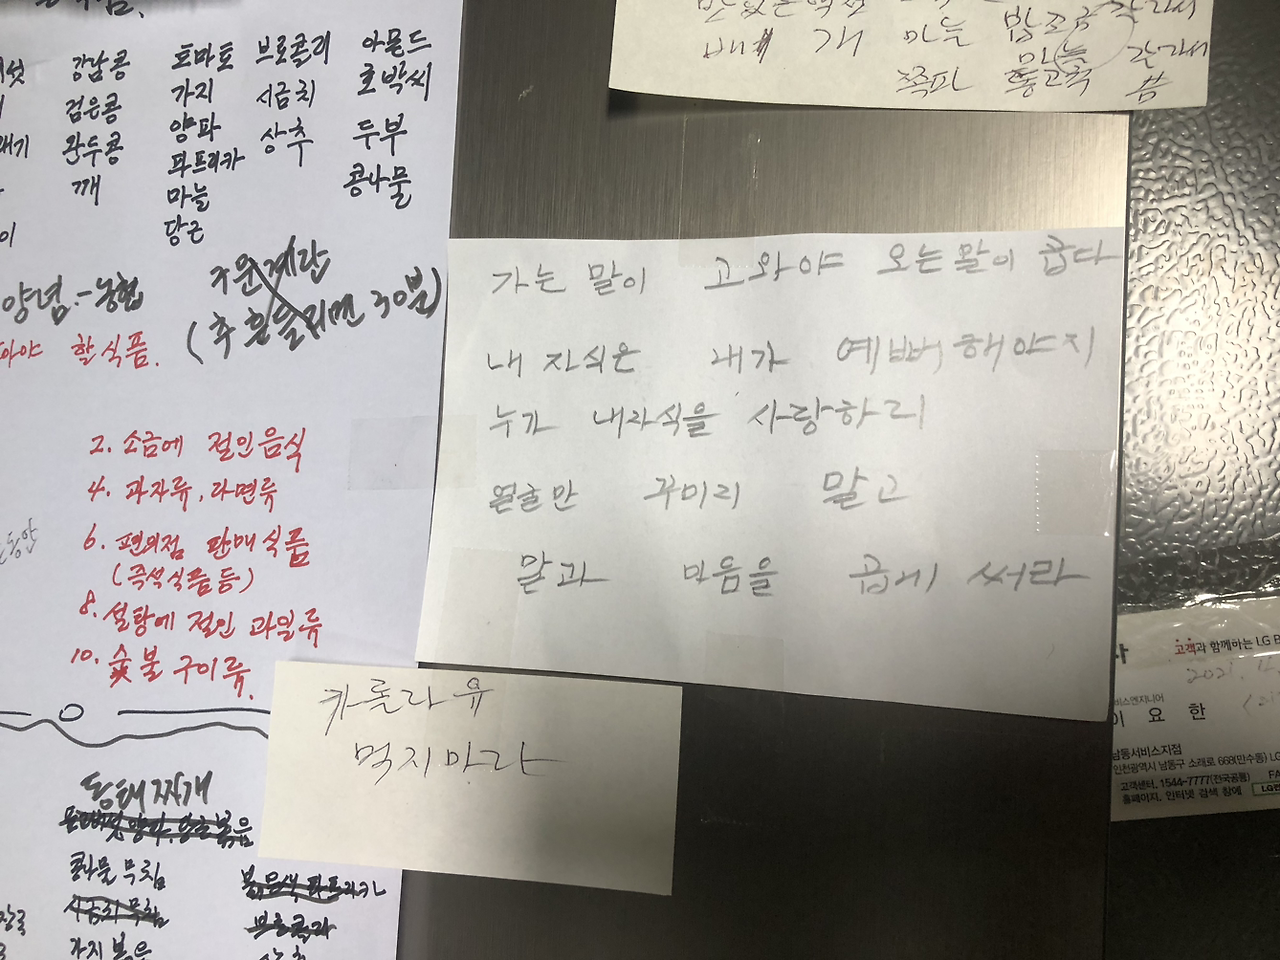 강남콩 토마토 브로콜리 아몬드
검은콩 가지 시금치 호박씨
완두콩 양파 상추 두부
깨 파프리카 콩나물
마늘
당근
양념-농협
주문 계란
(추 흔들리면 30분)
할 식품.
2. 소금에 절인음식
4. 과자류, 라면류
6. 편의점 판매식품
(즉석식품등)
8. 설탕에 절인 과일류
10. 숯불 구이류.
동태찌개
콩나물 무침
가지볶음
배 개 마늘 밥
마늘
쪽파 통고추 쌈
가는 말이 고와야 오는말이 곱다
내 자식은 내가 예뻐해야지
누가 내자식을 사랑하리
얼굴만 꾸미리 말고
말과 마음을 곱게 써라
카롤라유
먹지마라
고객과 함께하는 LG
2021.
비스엔지니어
이 요 한
남동서비스지점
인천광역시 남동구 소래로 668(만수동) LG
고객센터. 1544-7777(전국공통) FA
홈페이지. 인터넷 검색 창에